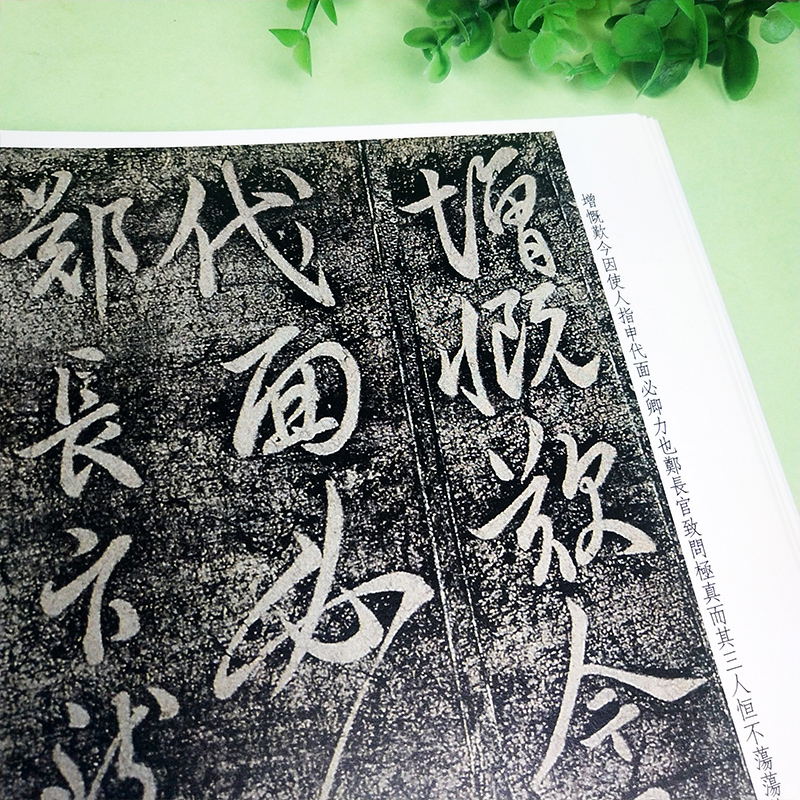 增慨歎今因使人指申代面必卿力也鄭長官致問極真而其三人恒不蕩蕩
增慨歎今
代面必
鄭長官致